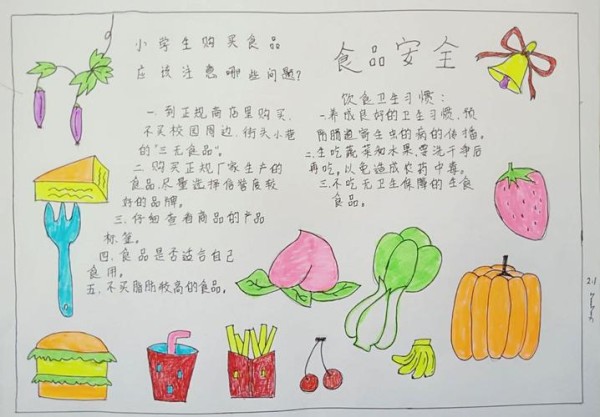 小学生购买食品
应该注意哪些问题?
一.到正规商店里购买,
不买校园周边,街头小巷
的"三无食品"。
二.购买正规厂家生产的
食品,尽量选择信誉度较
好的品牌。
三.仔细查看商品的产品
标签。
四.食品是否适合自己
食用。
五.不买脂肪较高的食品。
食品安全
饮食卫生习惯:
一.养成良好的卫生习惯,预
防肠道寄生虫的病的传播。
二.生吃蔬菜和水果,要洗干净后
再吃,以免造成农药中毒。
三.不吃无卫生保障的生食
食品。